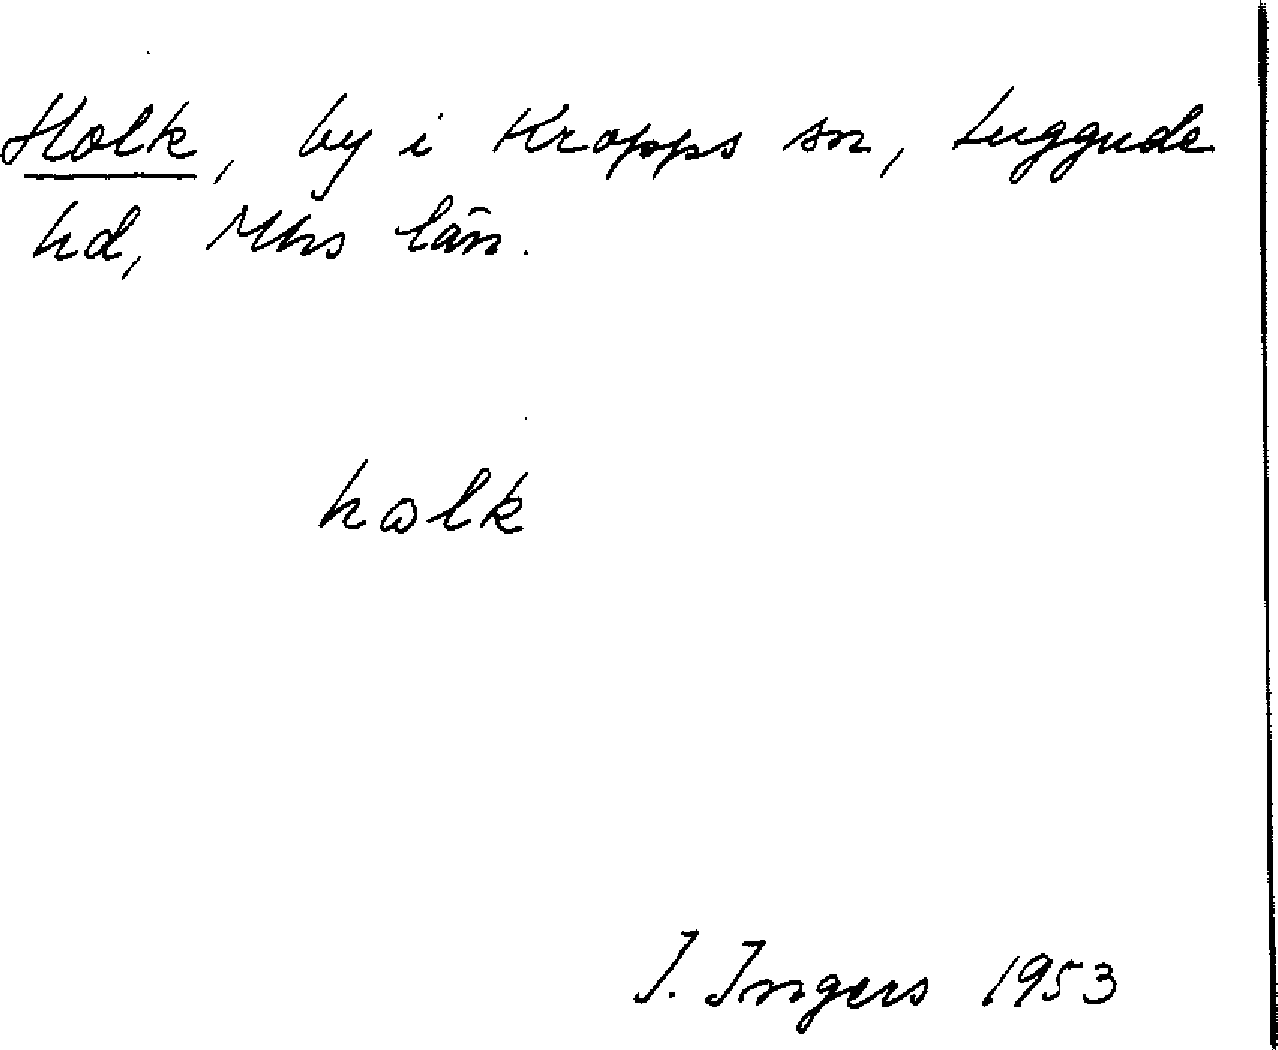 Holk, by i Kropps sn, Luggude
hd, Mhs län.
hɷlk
I. Ingers 1953